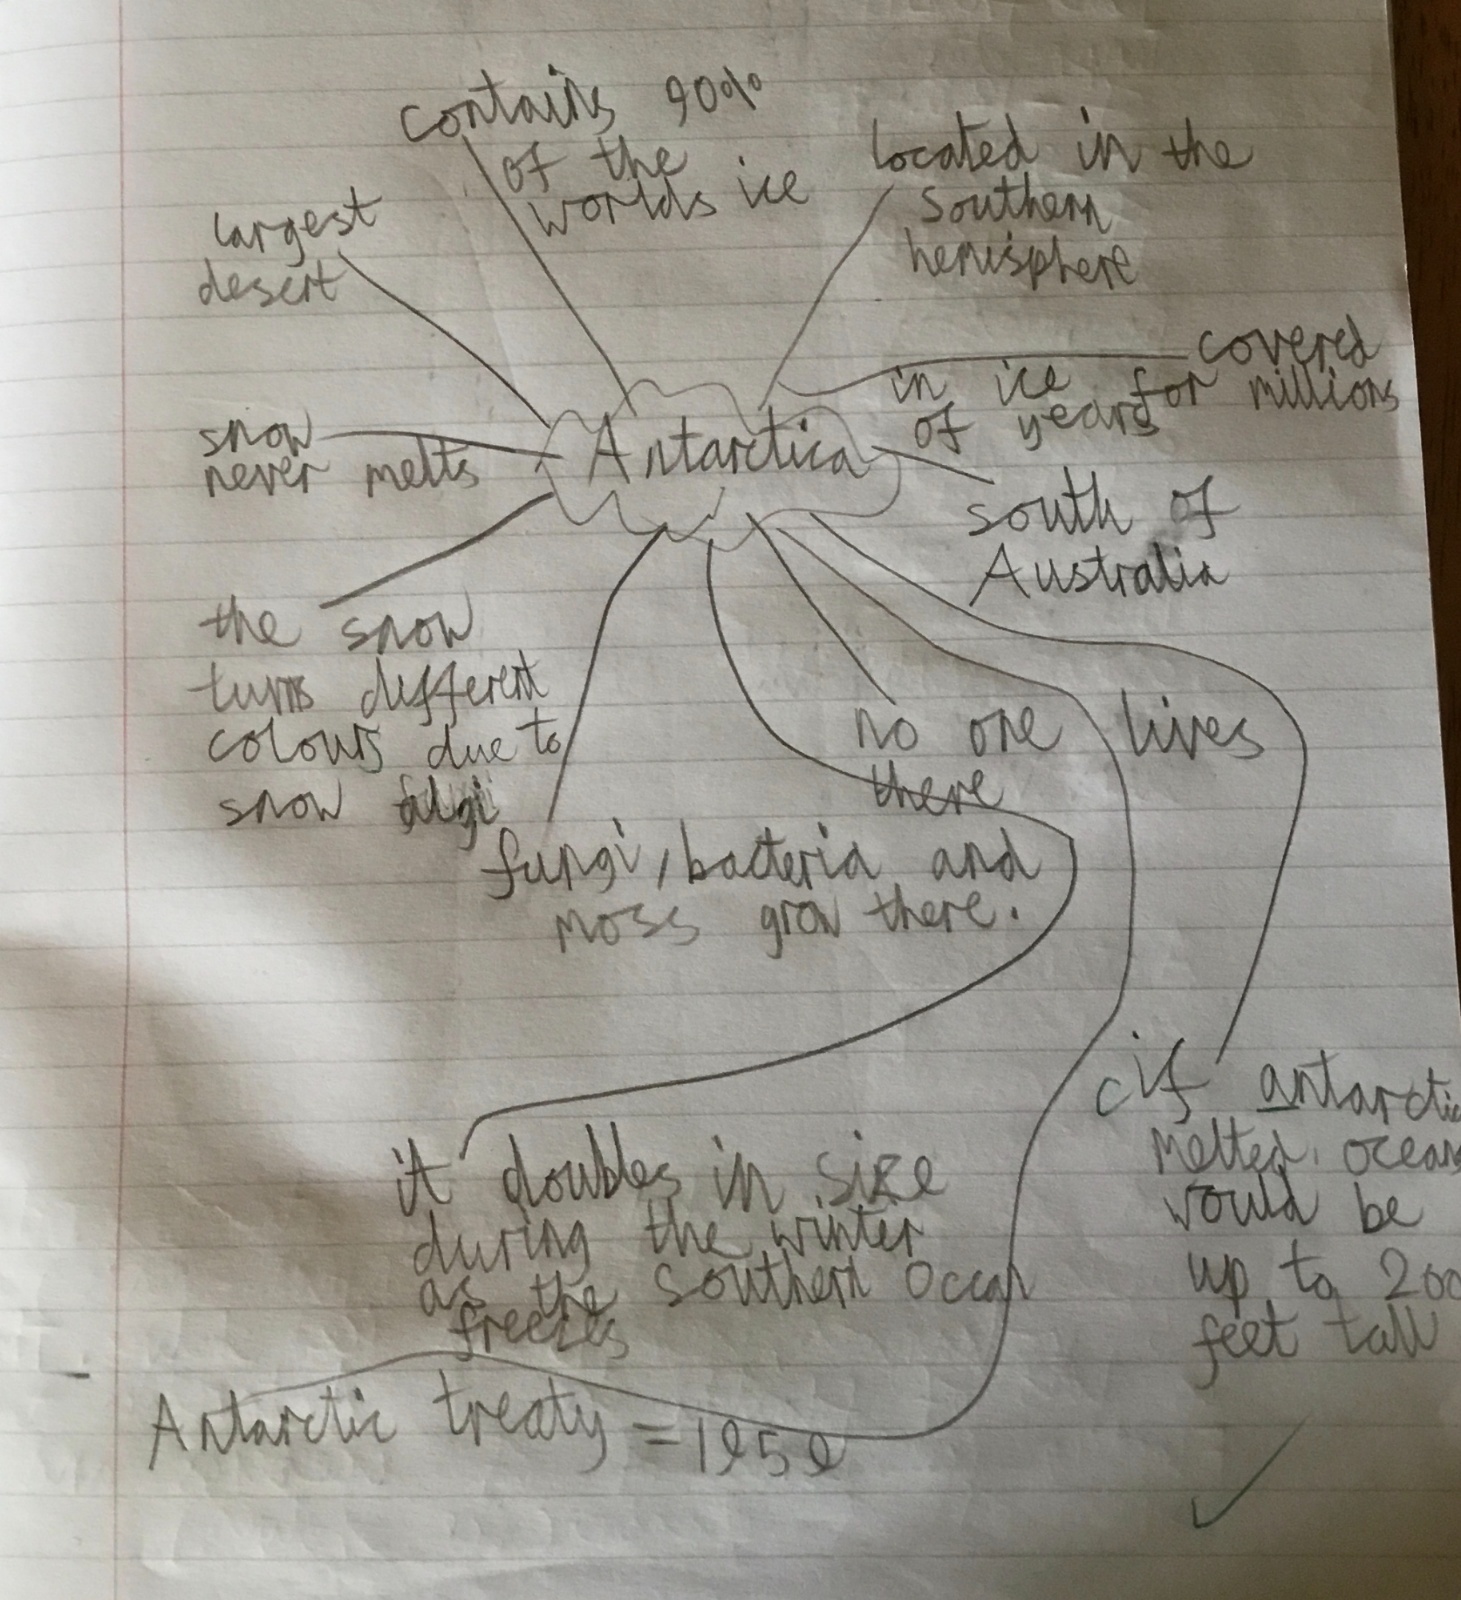 contains 90%
of the
worlds ice
located in the
Southern
hemisphere
largest
desert
covered
in ice for millions
of years
Antarctica
snow
never melts
south of
Australia
the snow
turns different
colours due to
snow algi
no one lives
there
fungi, bacteria and
moss grow there.
if antarctic
melted, ocean
would be
up to 200
feet tall
it doubles in size
during the winter
as the Southern Ocean
freezes
Antarctic treaty = 1959